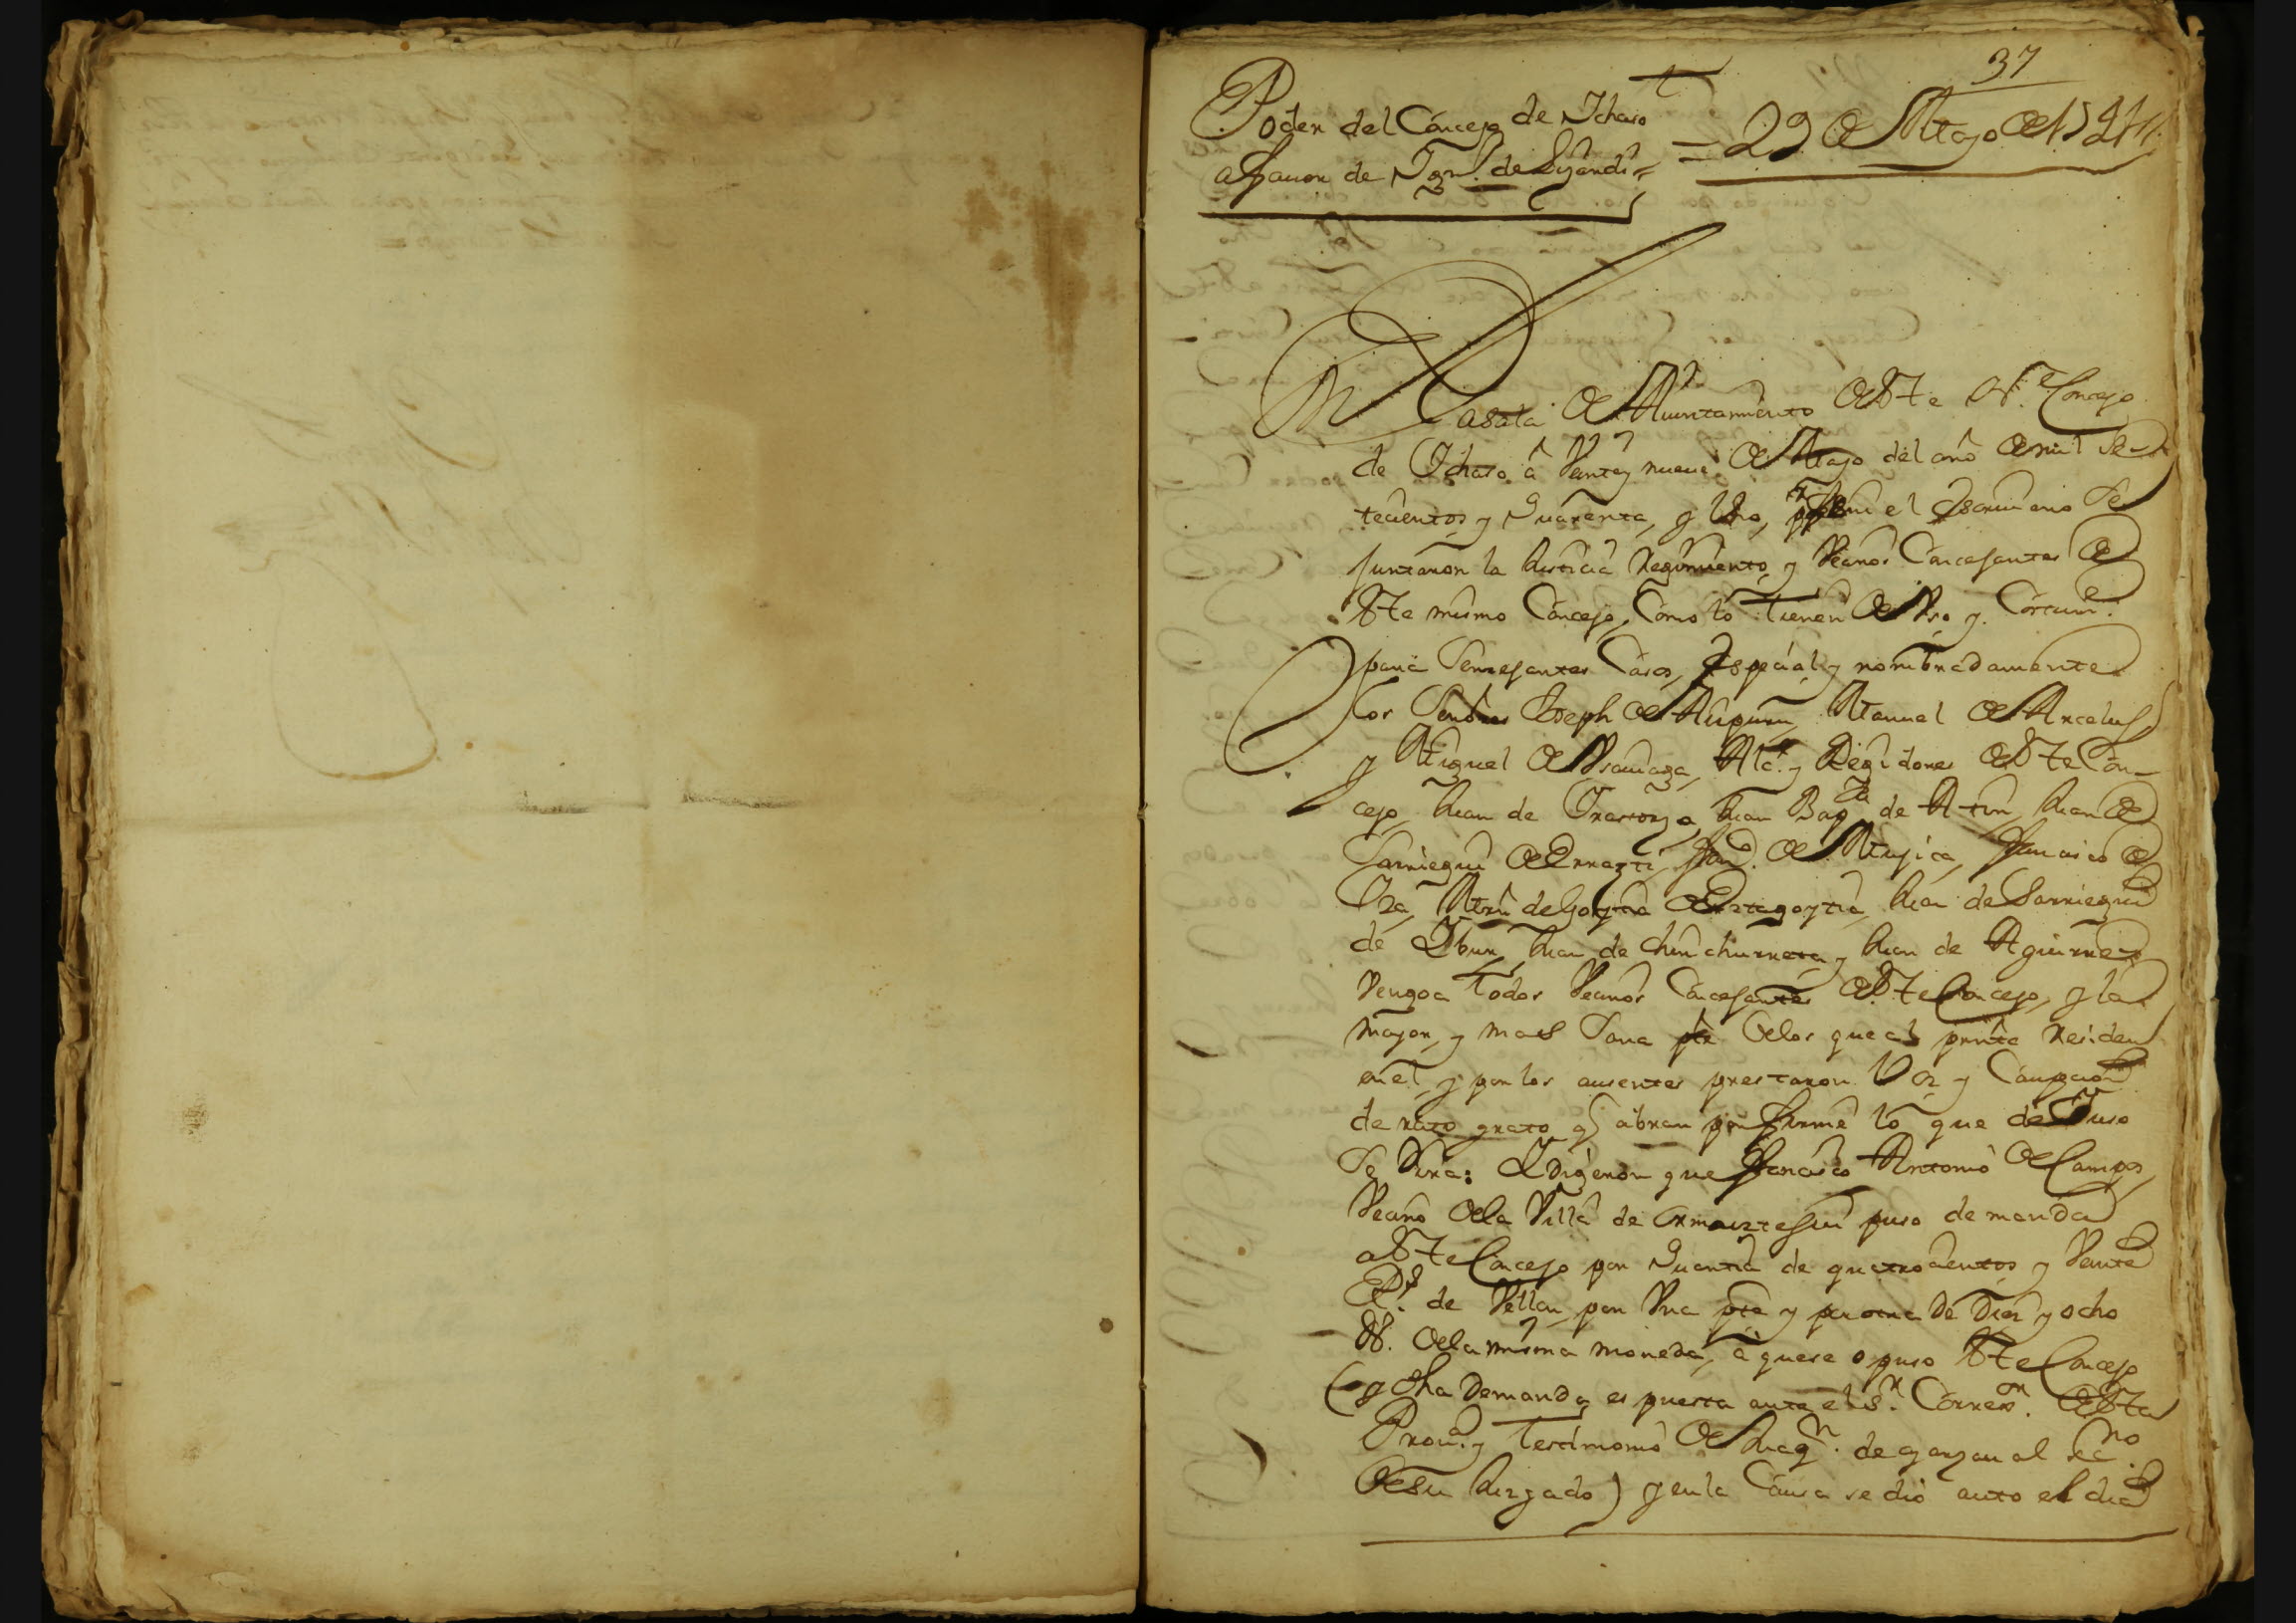 37
Poder del Concejo de Ichaso
a fauor de Ign.º de = 29 de Mayo de 1741
En la Casa de Aiuntamiento deste N. Concejo
de Ichaso â Veinte y nueue de Mayo del año de mil Se-
tecientos y Quarenta, y Uno, por el Escriuano Se
juntaron la Justicia Regimiento, y Vecinos Concejantes de
este mismo Concejo, Como lo tienen de Vso y Costum.
para Semejantes Casos, Especial y nombradamente
los Señores Joseph de Aispuru, Manuel de Arcelus
y Miguel de Vsauiaga, Alc.e y Regidores deste Con-
cejo, Juan de Juan Bap.ta de Atin, Juan de
Sarriegui de Errazti, de Mujica, Francisco de
Oza, Mrn de Goytia de Juan de Sarriegui
de Juan de Chinchurreta, y Juan de Aguirre
Vengoa todos Vecinos Concejantes deste Concejo, y la
mayor, y mas Sana pte de los que al prnte Residen
en el, y por los ausentes prestaron Voz y Caupcion
de rato grato q abran por firme lo que de Yuso
Se Dira: Y Digeron que Francisco Antonio de Campos
Vecino de la Villa de Ormaiztegui puso demanda
a este Concejo por Quantia de quatrocientos y Veinte
R.s de Vellon por Vna pte y por otra de Diez y ocho
R.s de la misma moneda, â que se opuso este Concejo
(y dha Demanda es puesta ante el S.r Correx.or desta
Prou.a y Testimonio de Juaq.n de ess.no
de su Juzgado) y en la Causa se dio auto el dia